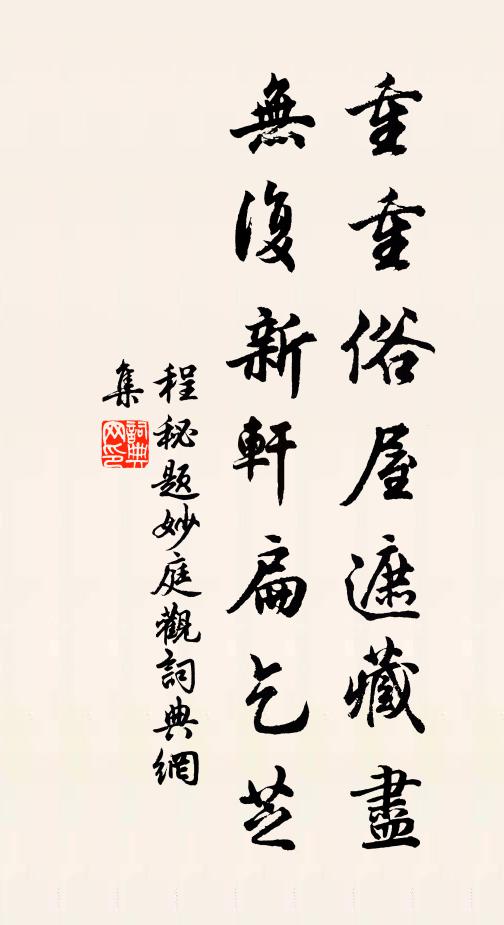 重重俗屋遮藏盡
無復新軒扁乞芝
程秘題妙庭觀詞典網
集
詞典
网印